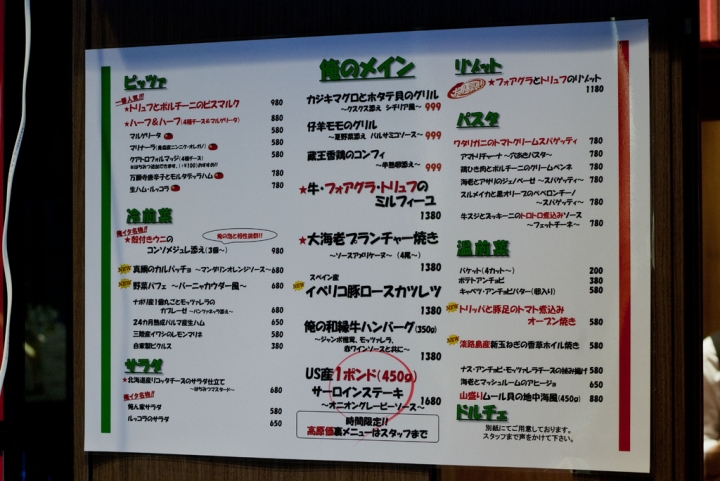 ピッツァ
一番人気!!
★トリュフとポルチーニのビスマルク 980
★ハーフ&ハーフ(4種チーズ&マルゲリータ) 880
マルゲリータ 580
マリナーラ 580
クアトロフォルマッジ(4種チーズ) 580
万願寺唐辛子とモルタデッラハム 780
生ハム・ルッコラ 780
冷前菜
俺イタ名物!!
俺の泡と相性抜群!!
★殻付きウニの
コンソメジュレ添え(3個〜) 980
NEW 真鯛のカルパッチョ 〜マンダリンオレンジソース〜 680
NEW 野菜パフェ 〜バーニャカウダー風〜 680
ナポリ産1個丸ごとモッツァレラの
カプレーゼ 〜パンツァネッラ添え〜 680
24カ月熟成パルマ産生ハム 650
三陸産イワシのレモンマリネ 580
自家製ピクルス 380
サラダ
★北海道産リコッタチーズのサラダ仕立て
〜はちみつマスタード〜 680
俺イタ名物!!
飛ん家サラダ 580
ルッコラのサラダ 650
俺のメイン
カジキマグロとホタテ貝のグリル
〜クスクス添え シチリア風〜 999
仔羊モモのグリル
〜夏野菜添え バルサミコソース〜 999
蔵王香鶏のコンフィ
999
★牛・フォアグラ・トリュフの
ミルフィーユ
1380
★大海老ブランチャー焼き
〜ソースアメリケーヌ〜 (4尾〜)
1380
スペイン産
NEW イベリコ豚ロースカツレツ
1380
俺の和縁牛ハンバーグ(350g)
〜ジャンボ椎茸、モッツァレラ、
赤ワインソースと共に〜
1380
US産1ポンド(450g)
サーロインステーキ 1680
〜オニオングレービーソース〜
時間限定!!
高原価裏メニューはスタッフまで
リゾット
★フォアグラとトリュフのリゾット
1180
パスタ
ワタリガニのトマトクリームスパゲッティ 780
アマトリチャーナ 〜穴あきパスタ〜 780
鶏ひき肉とポルチーニのクリームペンネ 780
海老とアサリのジェノベーゼ 〜スパゲッティ〜 780
スルメイカと黒オリーブのペペロンチーノ
〜スパゲッティ〜 780
牛スジとズッキーニのトロトロ煮込みソース
〜フェットチーネ〜 780
温前菜
バケット(4カット〜) 200
ポテトアンチョビ 380
キャベツ・アンチョビバター(卵入り) 580
NEW トリッパと豚足のトマト煮込み
オーブン焼き 580
NEW 淡路島産新玉ねぎの香草ホイル焼き 580
ナス・アンチョビ・モッツァレラチーズの挟み揚げ 580
海老とマッシュルームのアヒージョ 650
山盛りムール貝の地中海風(450g) 880
ドルチェ
別紙にてご用意しております。
スタッフまで声をかけて下さい。